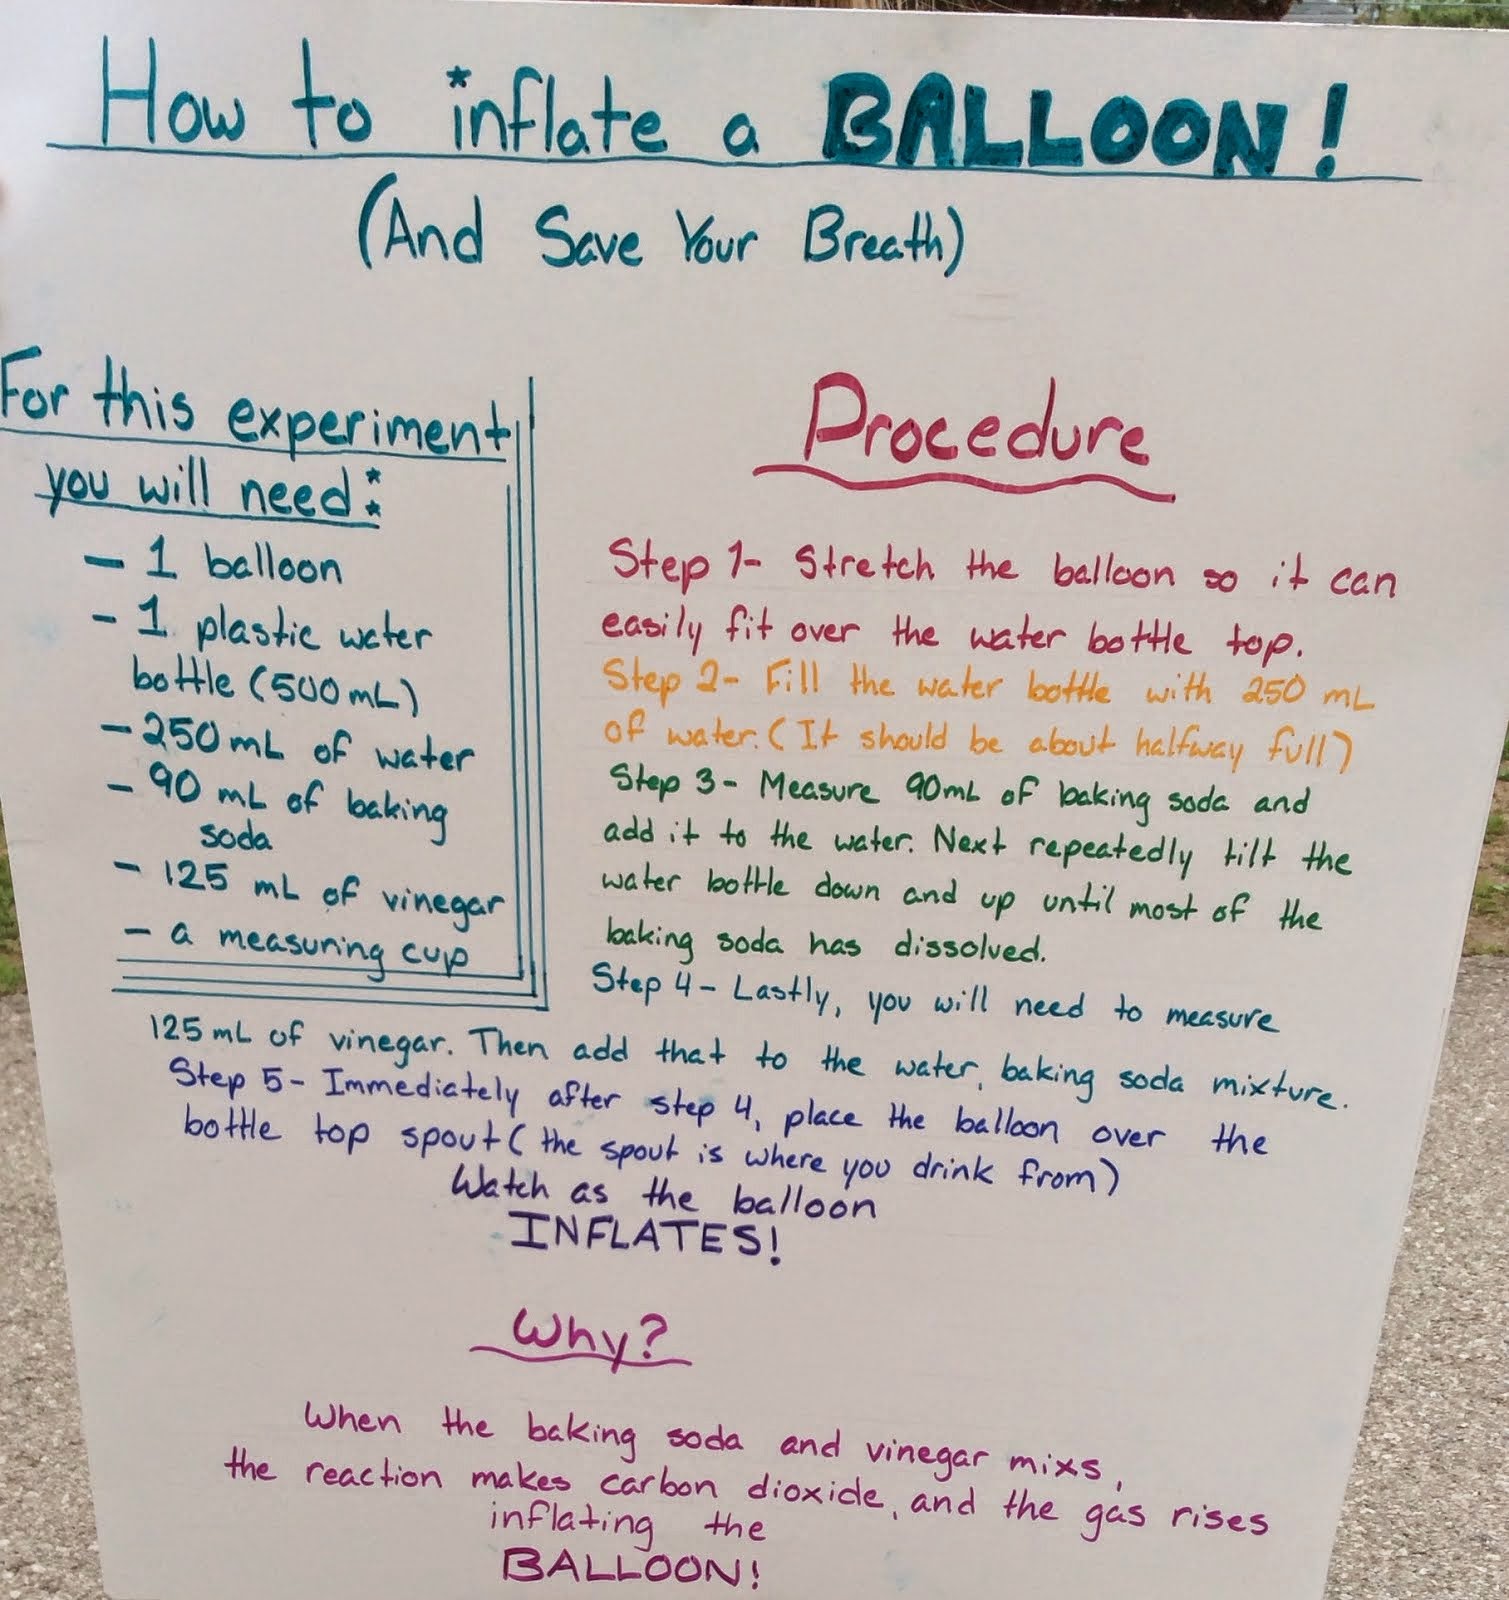 How to inflate a BALLOON!
(And Save Your Breath)
For this experiment
you will need:
- 1 balloon
- 1 plastic water
bottle (500mL)
- 250 mL of water
- 90 mL of baking
soda
- 125 mL of vinegar
- a measuring cup
Procedure
Step 1- Stretch the balloon so it can
easily fit over the water bottle top.
Step 2- Fill the water bottle with 250 mL
of water. (It should be about halfway full)
Step 3- Measure 90mL of baking soda and
add it to the water. Next repeatedly tilt the
water bottle down and up until most of the
baking soda has dissolved.
Step 4- Lastly, you will need to measure
125 mL of vinegar. Then add that to the water, baking soda mixture.
Step 5- Immediately after step 4, place the balloon over the
bottle top spout (the spout is where you drink from)
Watch as the balloon
INFLATES!
Why?
When the baking soda and vinegar mixs,
the reaction makes carbon dioxide, and the gas rises
inflating the
BALLOON!